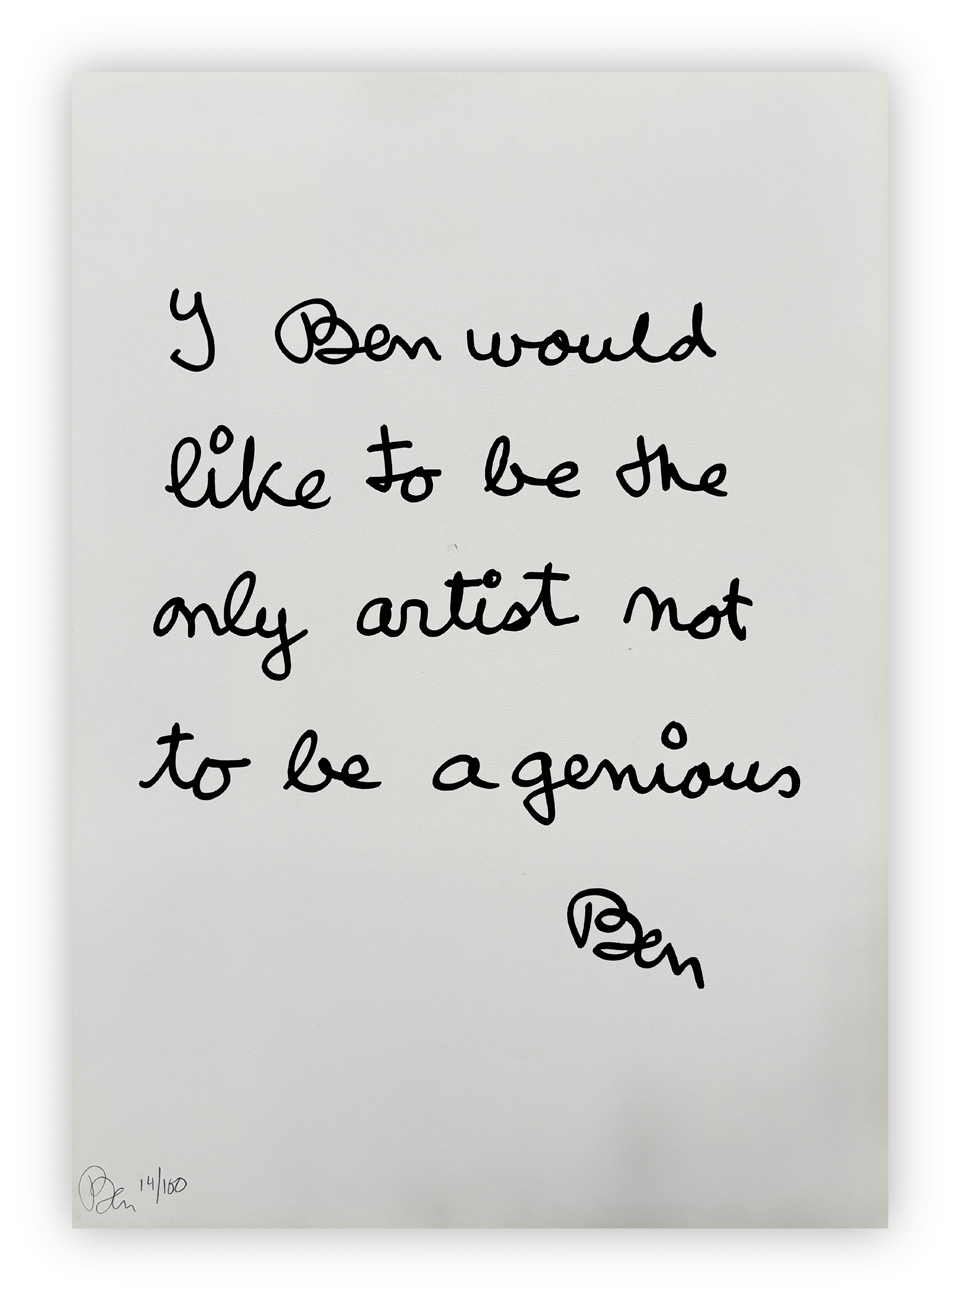 I Ben would
like to be the
only artist not
to be a genious
Ben
Ben 14/100